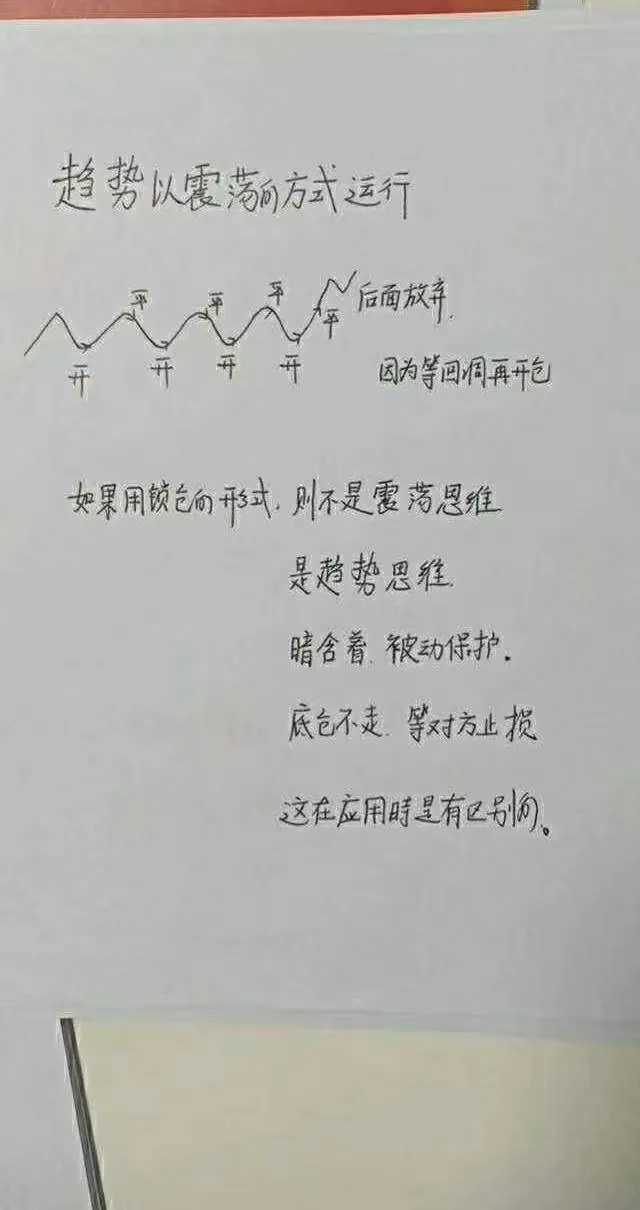 趋势以震荡的方式运行
平 平 平
平 后面放弃.
开 开 开 开
因为等回调再开仓
如果用锁仓的形式,则不是震荡思维
是趋势思维.
暗含着.被动保护.
底仓不走.等对方止损
这在应用時是有区别的。